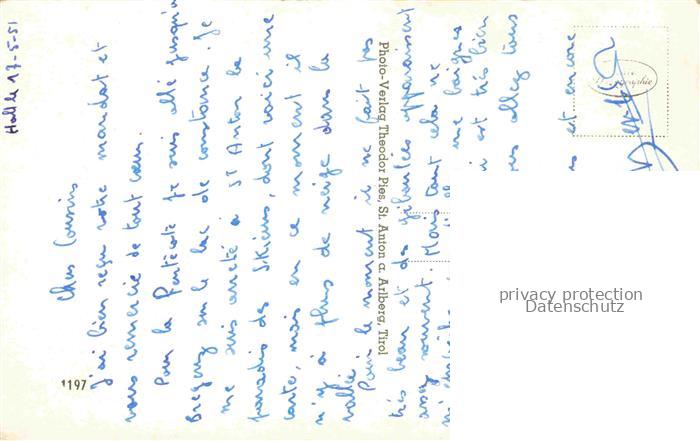 Hall le 17-5-51
Chers Cousins
J'ai bien reçu votre mandat et
vous remercie de tout cœur.
Pour la Pentecôte je suis allé jusqu'à
Bregenz sur le lac de constance. Je
me suis arrêté à St Anton le
paradis des Skieurs, dont voici une
carte, mais en ce moment il
n'y a plus de neige dans la
vallée
Pour le moment il ne fait pas
très beau et des giboulées apparaissent
assez souvent. Mais tout cela ne
une baignes
est très bien
allez tous
s et encore
Photo-Verlag Theodor Pies, St. Anton a. Arlberg, Tirol
1197
privacy protection
Datenschutz